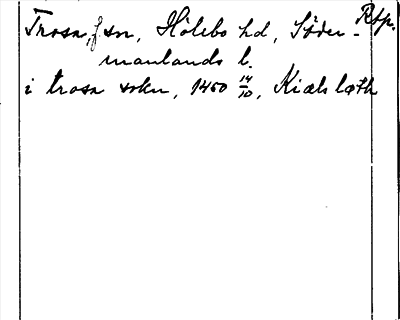 Rtp.
Trosa, f sn, Hölebo hd, Söder-
manlands l.
i trosa sokn, 1450 14/10, Kiæls læth